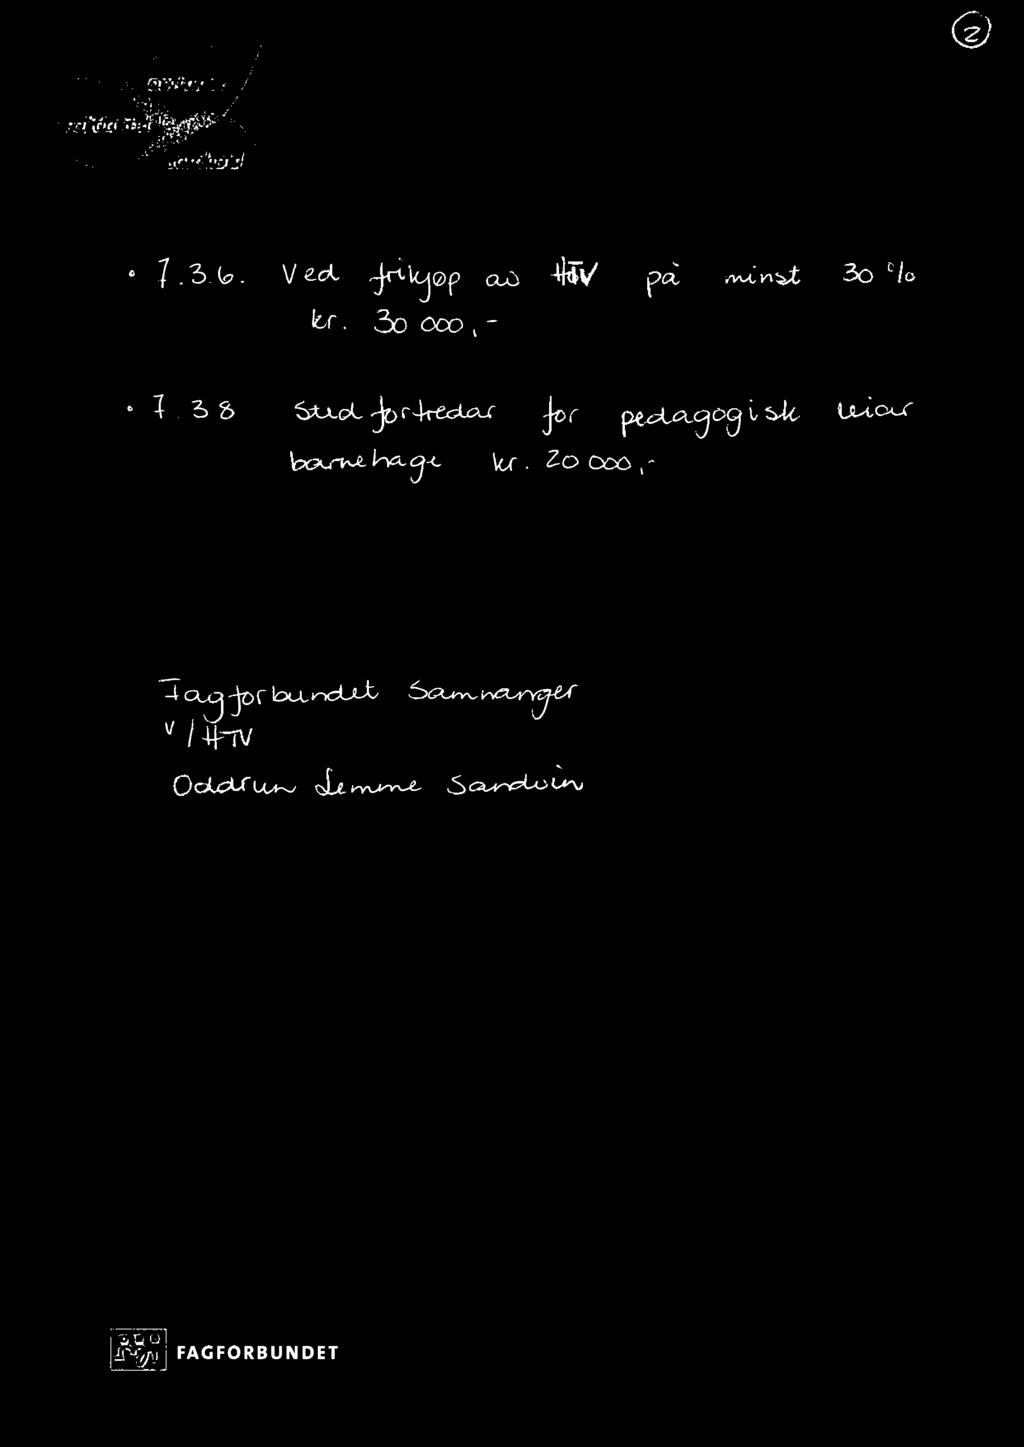 2
omtanke
solidaritet
samhold
• 7.3.6. Ved frikjøp av HTV på minst 30 %
kr. 30 000,-
• 7.38 Stedfortredar for pedagogisk leiar
barnehage kr. 20 000,-
Fagforbundet Samnanger
v/HTV
Oddrun Lemme Sandvin
FAGFORBUNDET